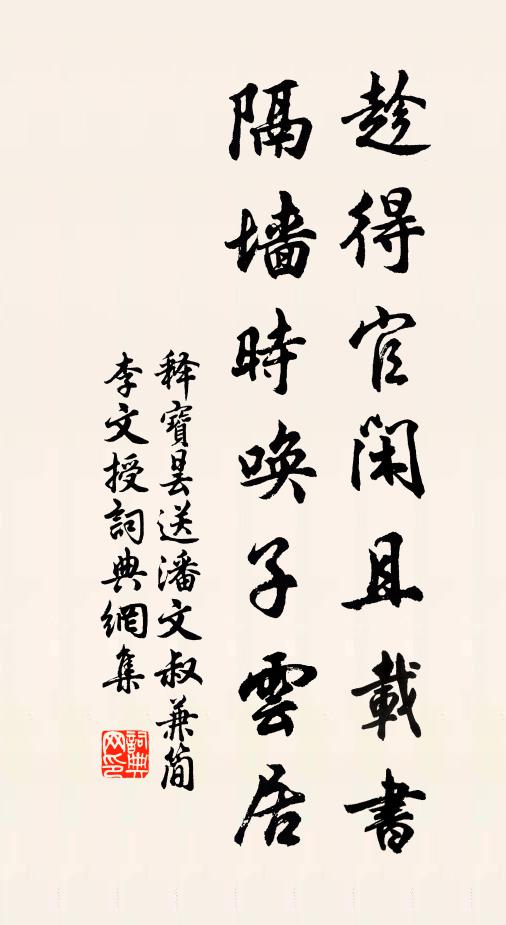 趁得官閑且載書
隔墙時喚子雲居
释寶曇送潘文叔兼簡
李文授詞典網集
詞典网印